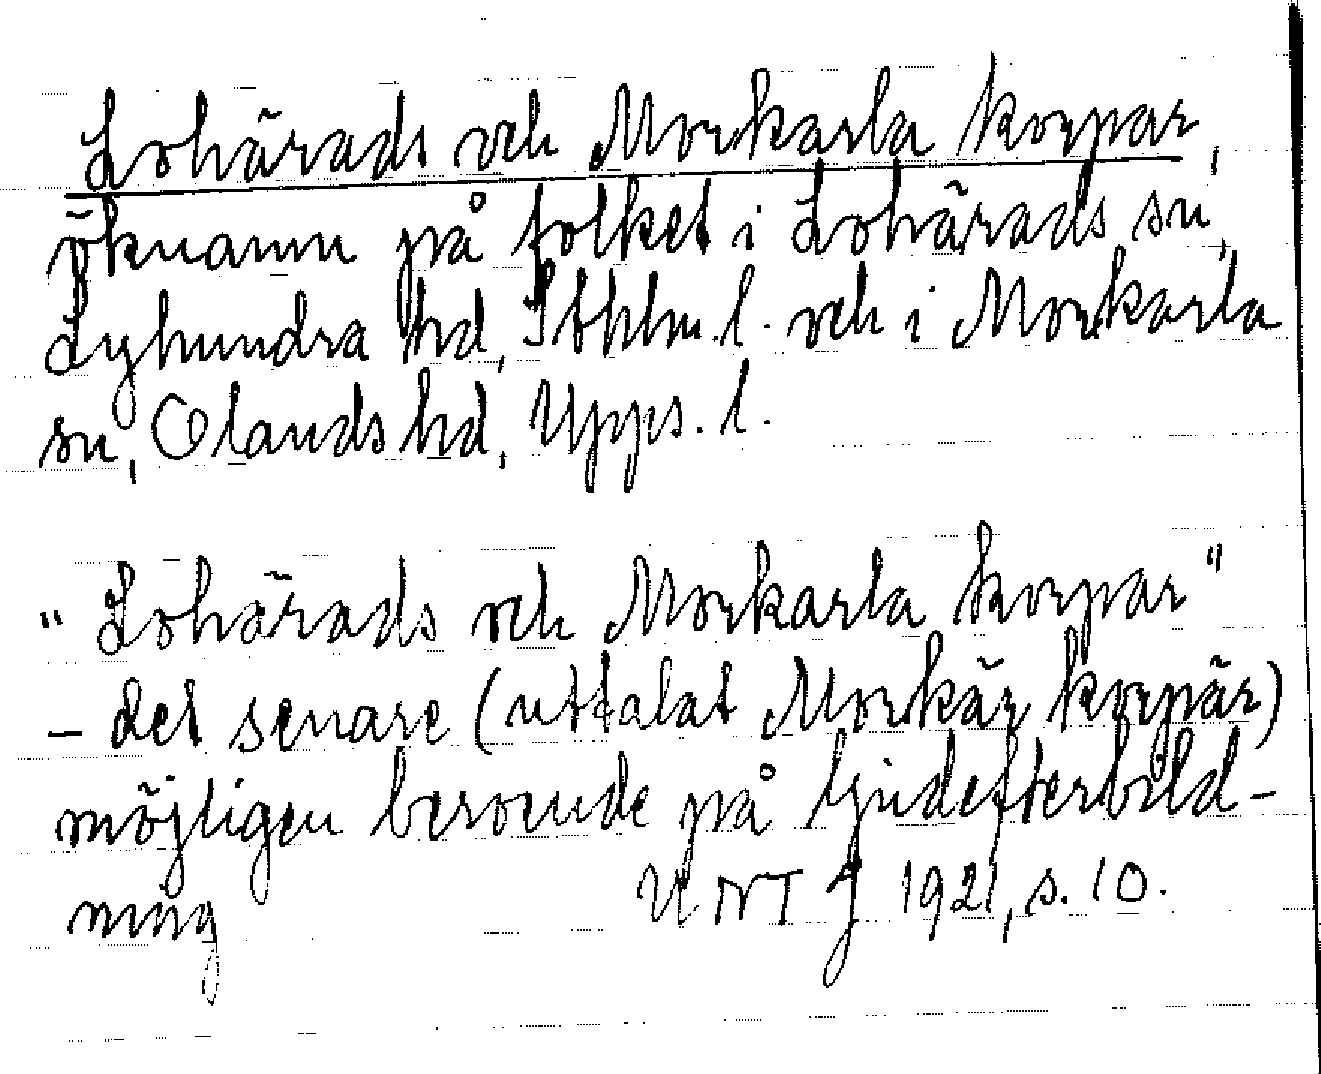 Lohärads och Morkarla korpar,
öknamn på folket i Lohärads sn,
Lyhundra hd, Sthlm.l. och i Morkarla
sn, Olands hd, Upps. l.
"Lohärads och Morkarla korpar"
- det senare (uttalat Morkär korpär)
möjligen beroende på ljudefterbild-
ning UNT J 1921, s. 10.